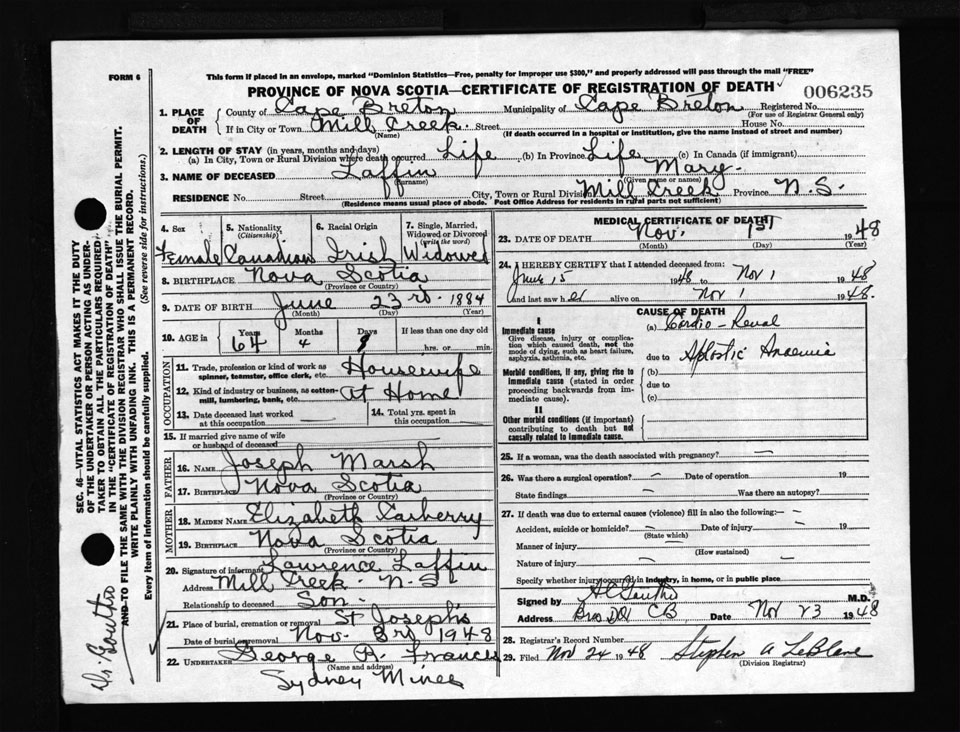 FORM 6
This form if placed in an envelope, marked "Dominion Statistics—Free, penalty for improper use $300," and properly addressed will pass through the mail "FREE"
PROVINCE OF NOVA SCOTIA—CERTIFICATE OF REGISTRATION OF DEATH
006235
1. PLACE OF DEATH
County of Cape Breton Municipality of Cape Breton Registered No.
(For use of Registrar General only)
If in City or Town Mill Creek. Street House No.
(Name) (If death occurred in a hospital or institution, give the name instead of street and number)
2. LENGTH OF STAY (in years, months and days)
(a) In City, Town or Rural Division where death occurred Life (b) In Province Life (c) In Canada (if immigrant)
3. NAME OF DECEASED Laffin Mary.
(Surname) (Given name or names)
RESIDENCE No. Street City, Town or Rural Division Mill Creek Province N.S.
(Residence means usual place of abode. Post Office Address for residents in rural parts not sufficient)
4. Sex
Female
5. Nationality, (Citizenship)
Canadian
6. Racial Origin
Irish
7. Single, Married, Widowed or Divorced (write the word)
Widowed
8. BIRTHPLACE Nova Scotia
(Province or Country)
9. DATE OF BIRTH June 23rd. 1884
(Month) (Day) (Year)
10. AGE in
Years Months Days If less than one day old
64 4 hrs. or min.
OCCUPATION
11. Trade, profession or kind of work as spinner, teamster, office clerk, etc. Housewife
12. Kind of industry or business, as cotton-mill, lumbering, bank, etc. At Home
13. Date deceased last worked at this occupation
14. Total yrs. spent in this occupation
15. If married give name of wife or husband of deceased
FATHER
16. NAME Joseph Marsh
17. BIRTHPLACE Nova Scotia
(Province or Country)
MOTHER
18. MAIDEN NAME Elizabeth Carberry
19. BIRTHPLACE Nova Scotia
(Province or Country)
20. Signature of informant Lawrence Laffin
Address Mill Creek. N S.
Relationship to deceased Son.
21. Place of burial, cremation or removal St Joseph's
Date of burial or removal Nov. 3rd 1948
22. UNDERTAKER George A. Francis
(Name and address)
Sydney Mines
MEDICAL CERTIFICATE OF DEATH
23. DATE OF DEATH Nov. 1ST 1948
(Month) (Day) (Year)
24. I HEREBY CERTIFY that I attended deceased from:
June 15 1948 to Nov 1 1948
and last saw her alive on Nov 1 1948.
CAUSE OF DEATH
I
Immediate cause (a) Cardio-Renal
Give disease, injury or complication which caused death, not the mode of dying, such as heart failure, asphyxia, asthenia, etc.
due to Aplastic Anaemia
Morbid conditions, if any, giving rise to immediate cause (stated in order proceeding backwards from immediate cause).
(b)
due to
(c)
II
Other morbid conditions (if important) contributing to death but not causally related to immediate cause.
25. If a woman, was the death associated with pregnancy? —
26. Was there a surgical operation? — Date of operation 19
State findings — Was there an autopsy?
27. If death was due to external causes (violence) fill in also the following:— —
Accident, suicide or homicide? — Date of injury — 19
(State which)
Manner of injury
(How sustained)
Nature of injury —
Specify whether injury occurred in industry, in home, or in public place
Signed by M.D.
Address Date Nov 23 1948
28. Registrar's Record Number
29. Filed Nov 24 1948 Stephen A LeBlanc
(Division Registrar)
SEC. 46—VITAL STATISTICS ACT MAKES IT THE DUTY
OF THE UNDERTAKER OR PERSON ACTING AS UNDER-
TAKER TO OBTAIN ALL THE PARTICULARS REQUIRED
IN THE "CERTIFICATE OF REGISTRATION OF DEATH"
AND TO FILE THE SAME WITH THE DIVISION REGISTRAR WHO SHALL ISSUE THE BURIAL PERMIT.
WRITE PLAINLY WITH UNFADING INK. THIS IS A PERMANENT RECORD.
Every item of information should be carefully supplied. (See reverse side for instructions.)